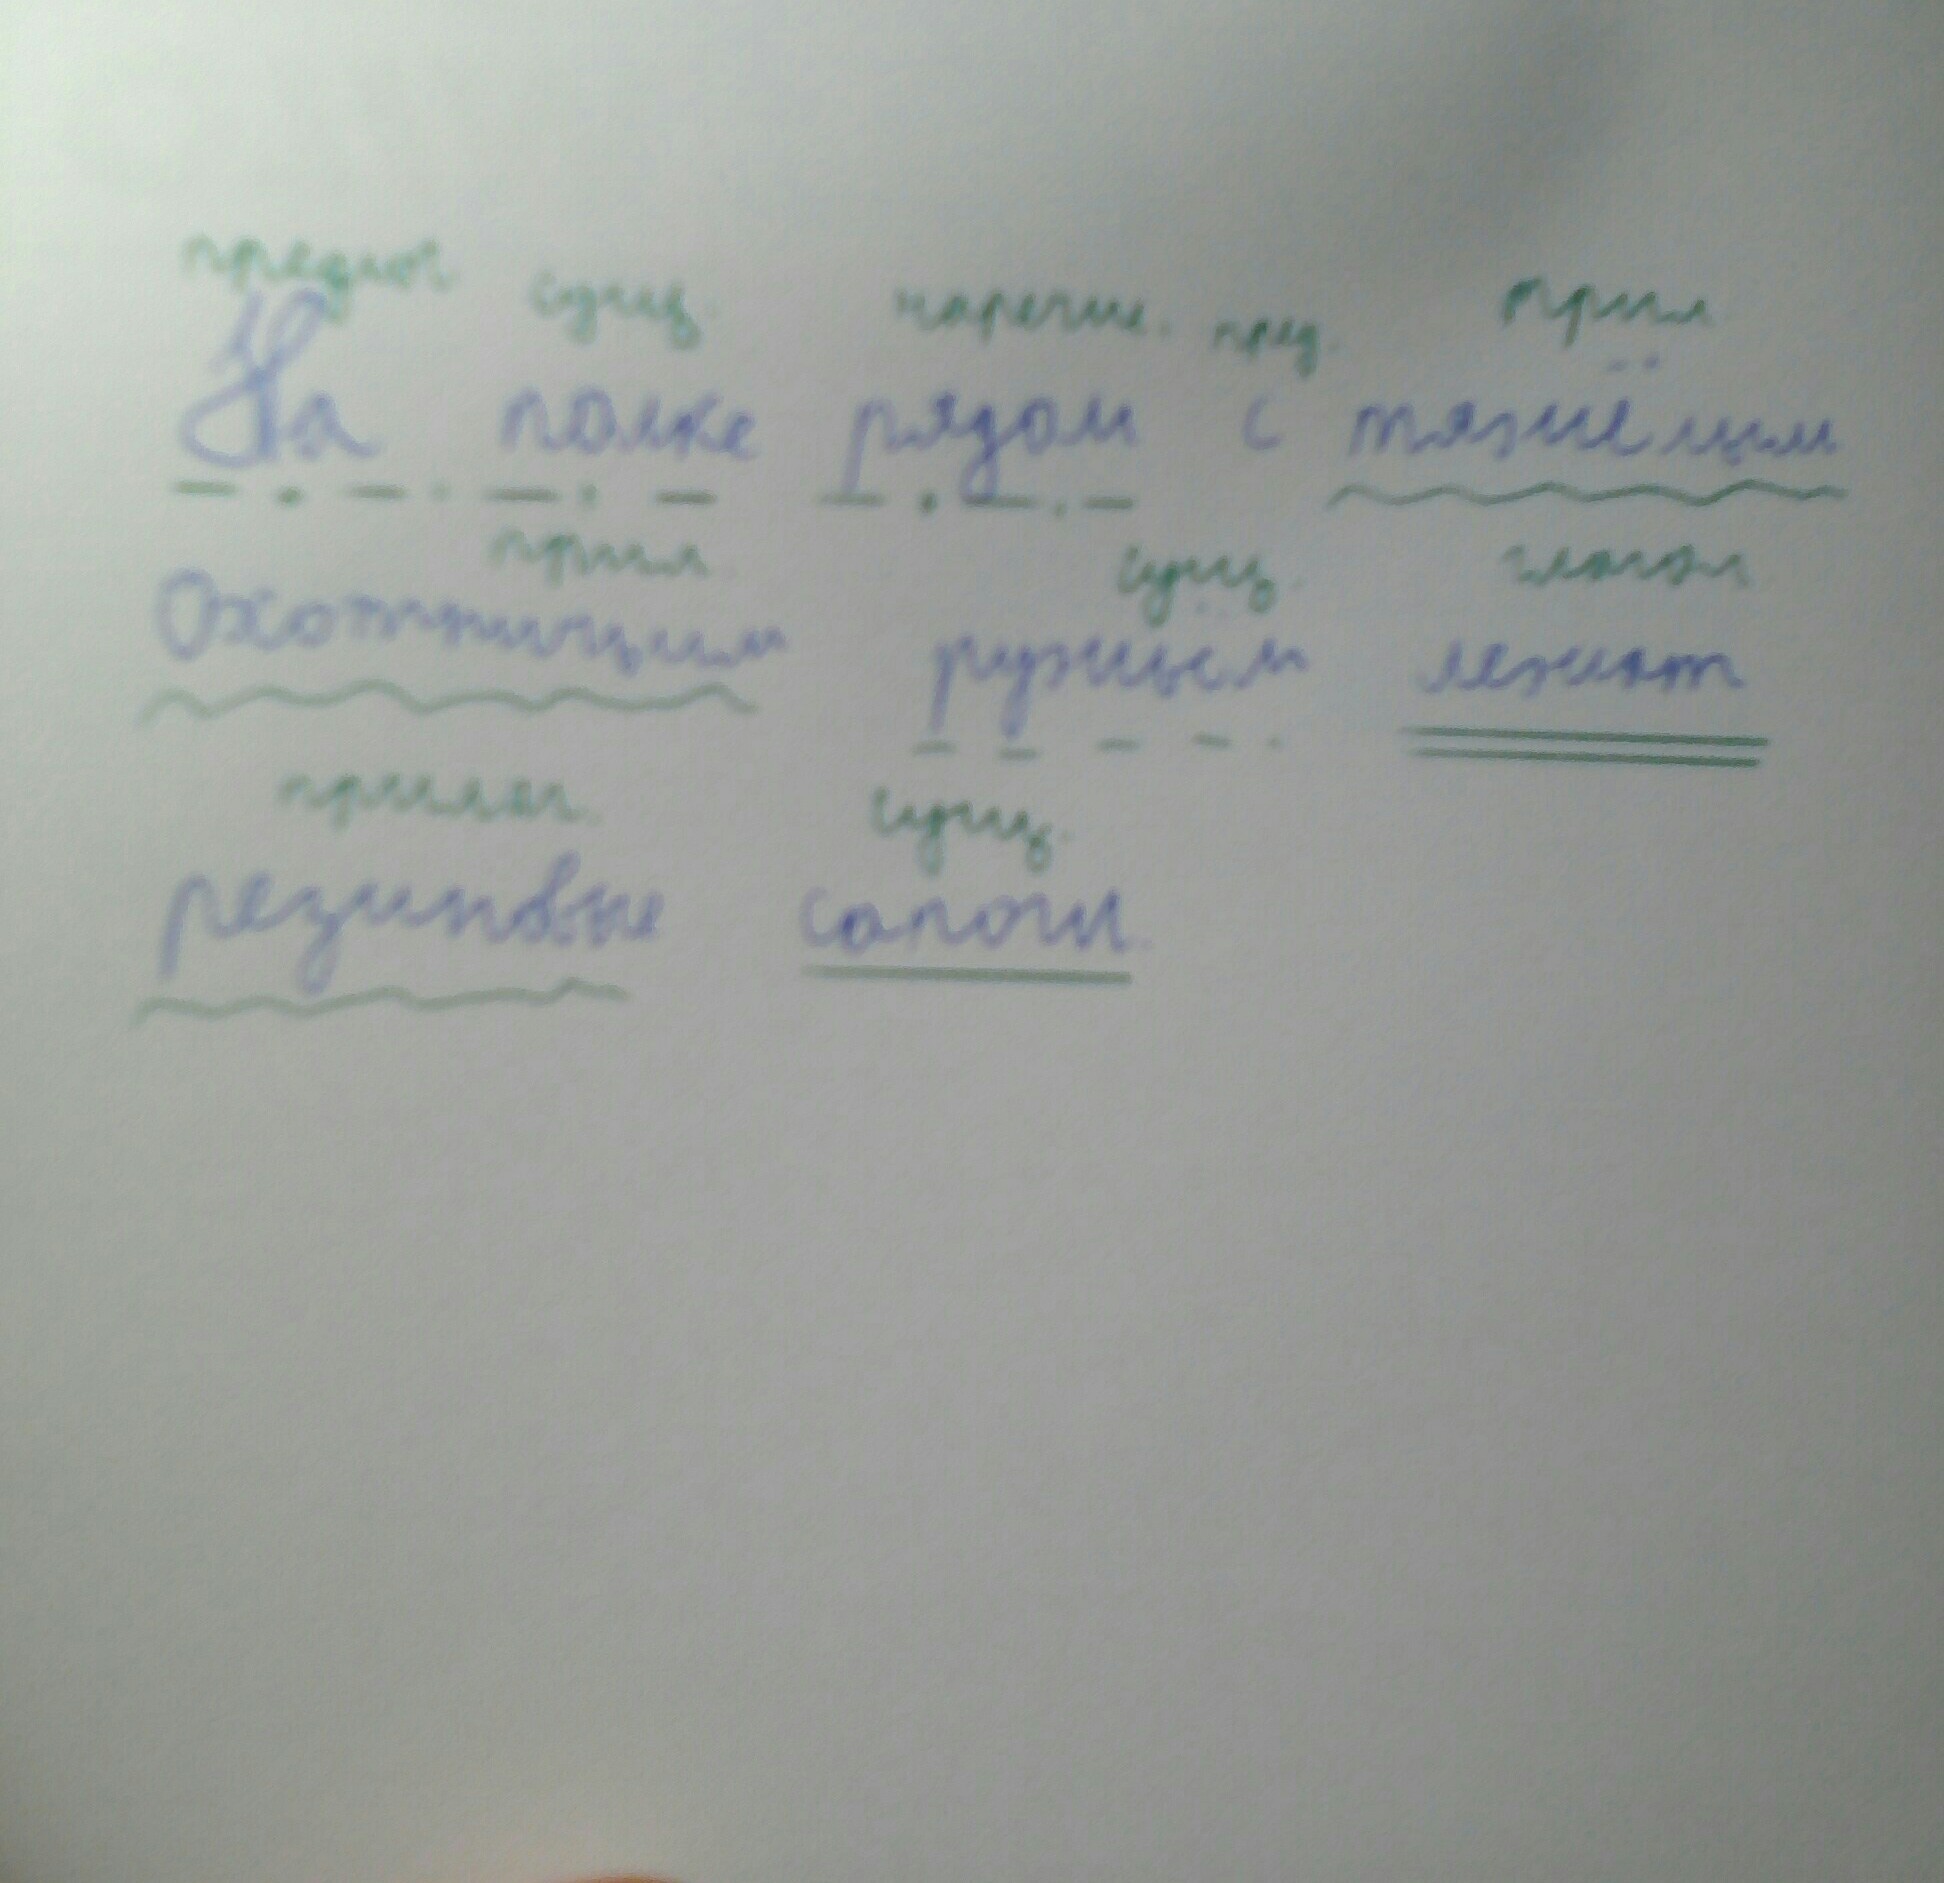 предлог сущ. наречие. пред. прил
На полке рядом с тяжёлым
прил сущ. глагол
Охотничьим ружьём лежат
прилаг. сущ.
резиновые сапоги.